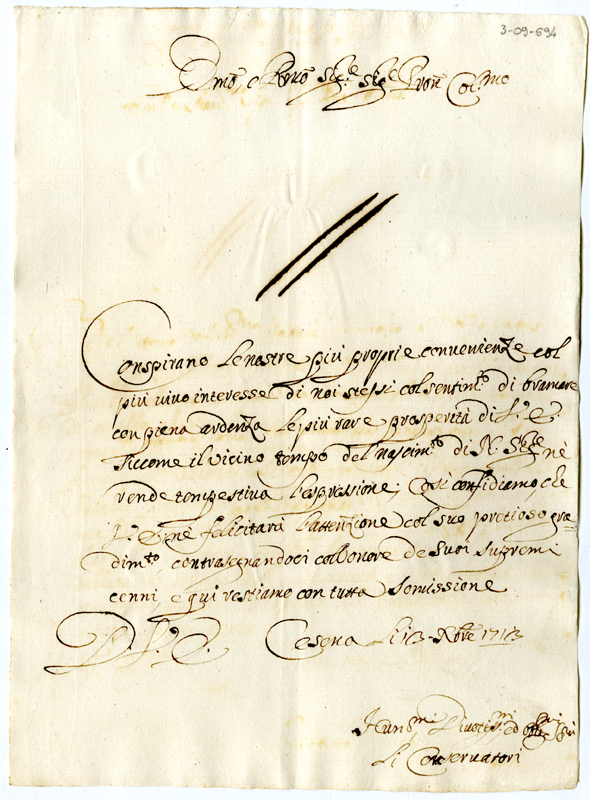 3-09-694
Emo, e Rmo Sige. Sige Pron Colmo
Conspirano le nostre più proprie convenienze col
più vivo interesse di noi stessi col sentimto di bramare
con piena ardenza le più rare prosperità di V. E.
Siccome il vicino tempo del nascimto di N. Sige nè
rende tempestiva l'espressione; Così confidiamo, che
V. E. nè feliciterà l'attenzione col suo pretioso gra=
dimto contrasegnandoci coll'onore de Suoi supremi
cenni, e qui restiamo con tutta somissione
D. V. E. Cesena li 13. Nbre 1713
Humi Divotimi ed Obli
Li Conservatori